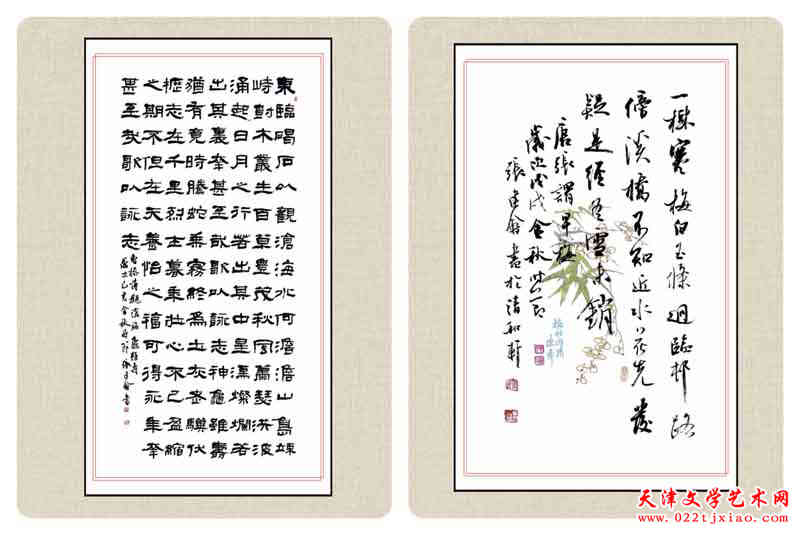 東臨碣石以觀滄海水何澹澹山島竦
峙樹木叢生百草豐茂秋風蕭瑟洪波
涌起日月之行若出其中星漢燦爛若
出其裏幸甚至哉歌以詠志神龜雖壽
猶有竟時騰蛇乘霧終為土灰老驥伏
櫪志在千里烈士暮年壯心不已盈縮
之期不但在天養怡之福可得永年幸
甚至哉歌以詠志
曹操詩觀滄海龜雖壽
一樹寒梅白玉條迥臨邨路
傍溪橋不知近水花先發
疑是經冬雪未銷
唐張謂早梅
歲次戊戌金秋
書於清和軒
天津文学艺术网
www.022tjxiao.com